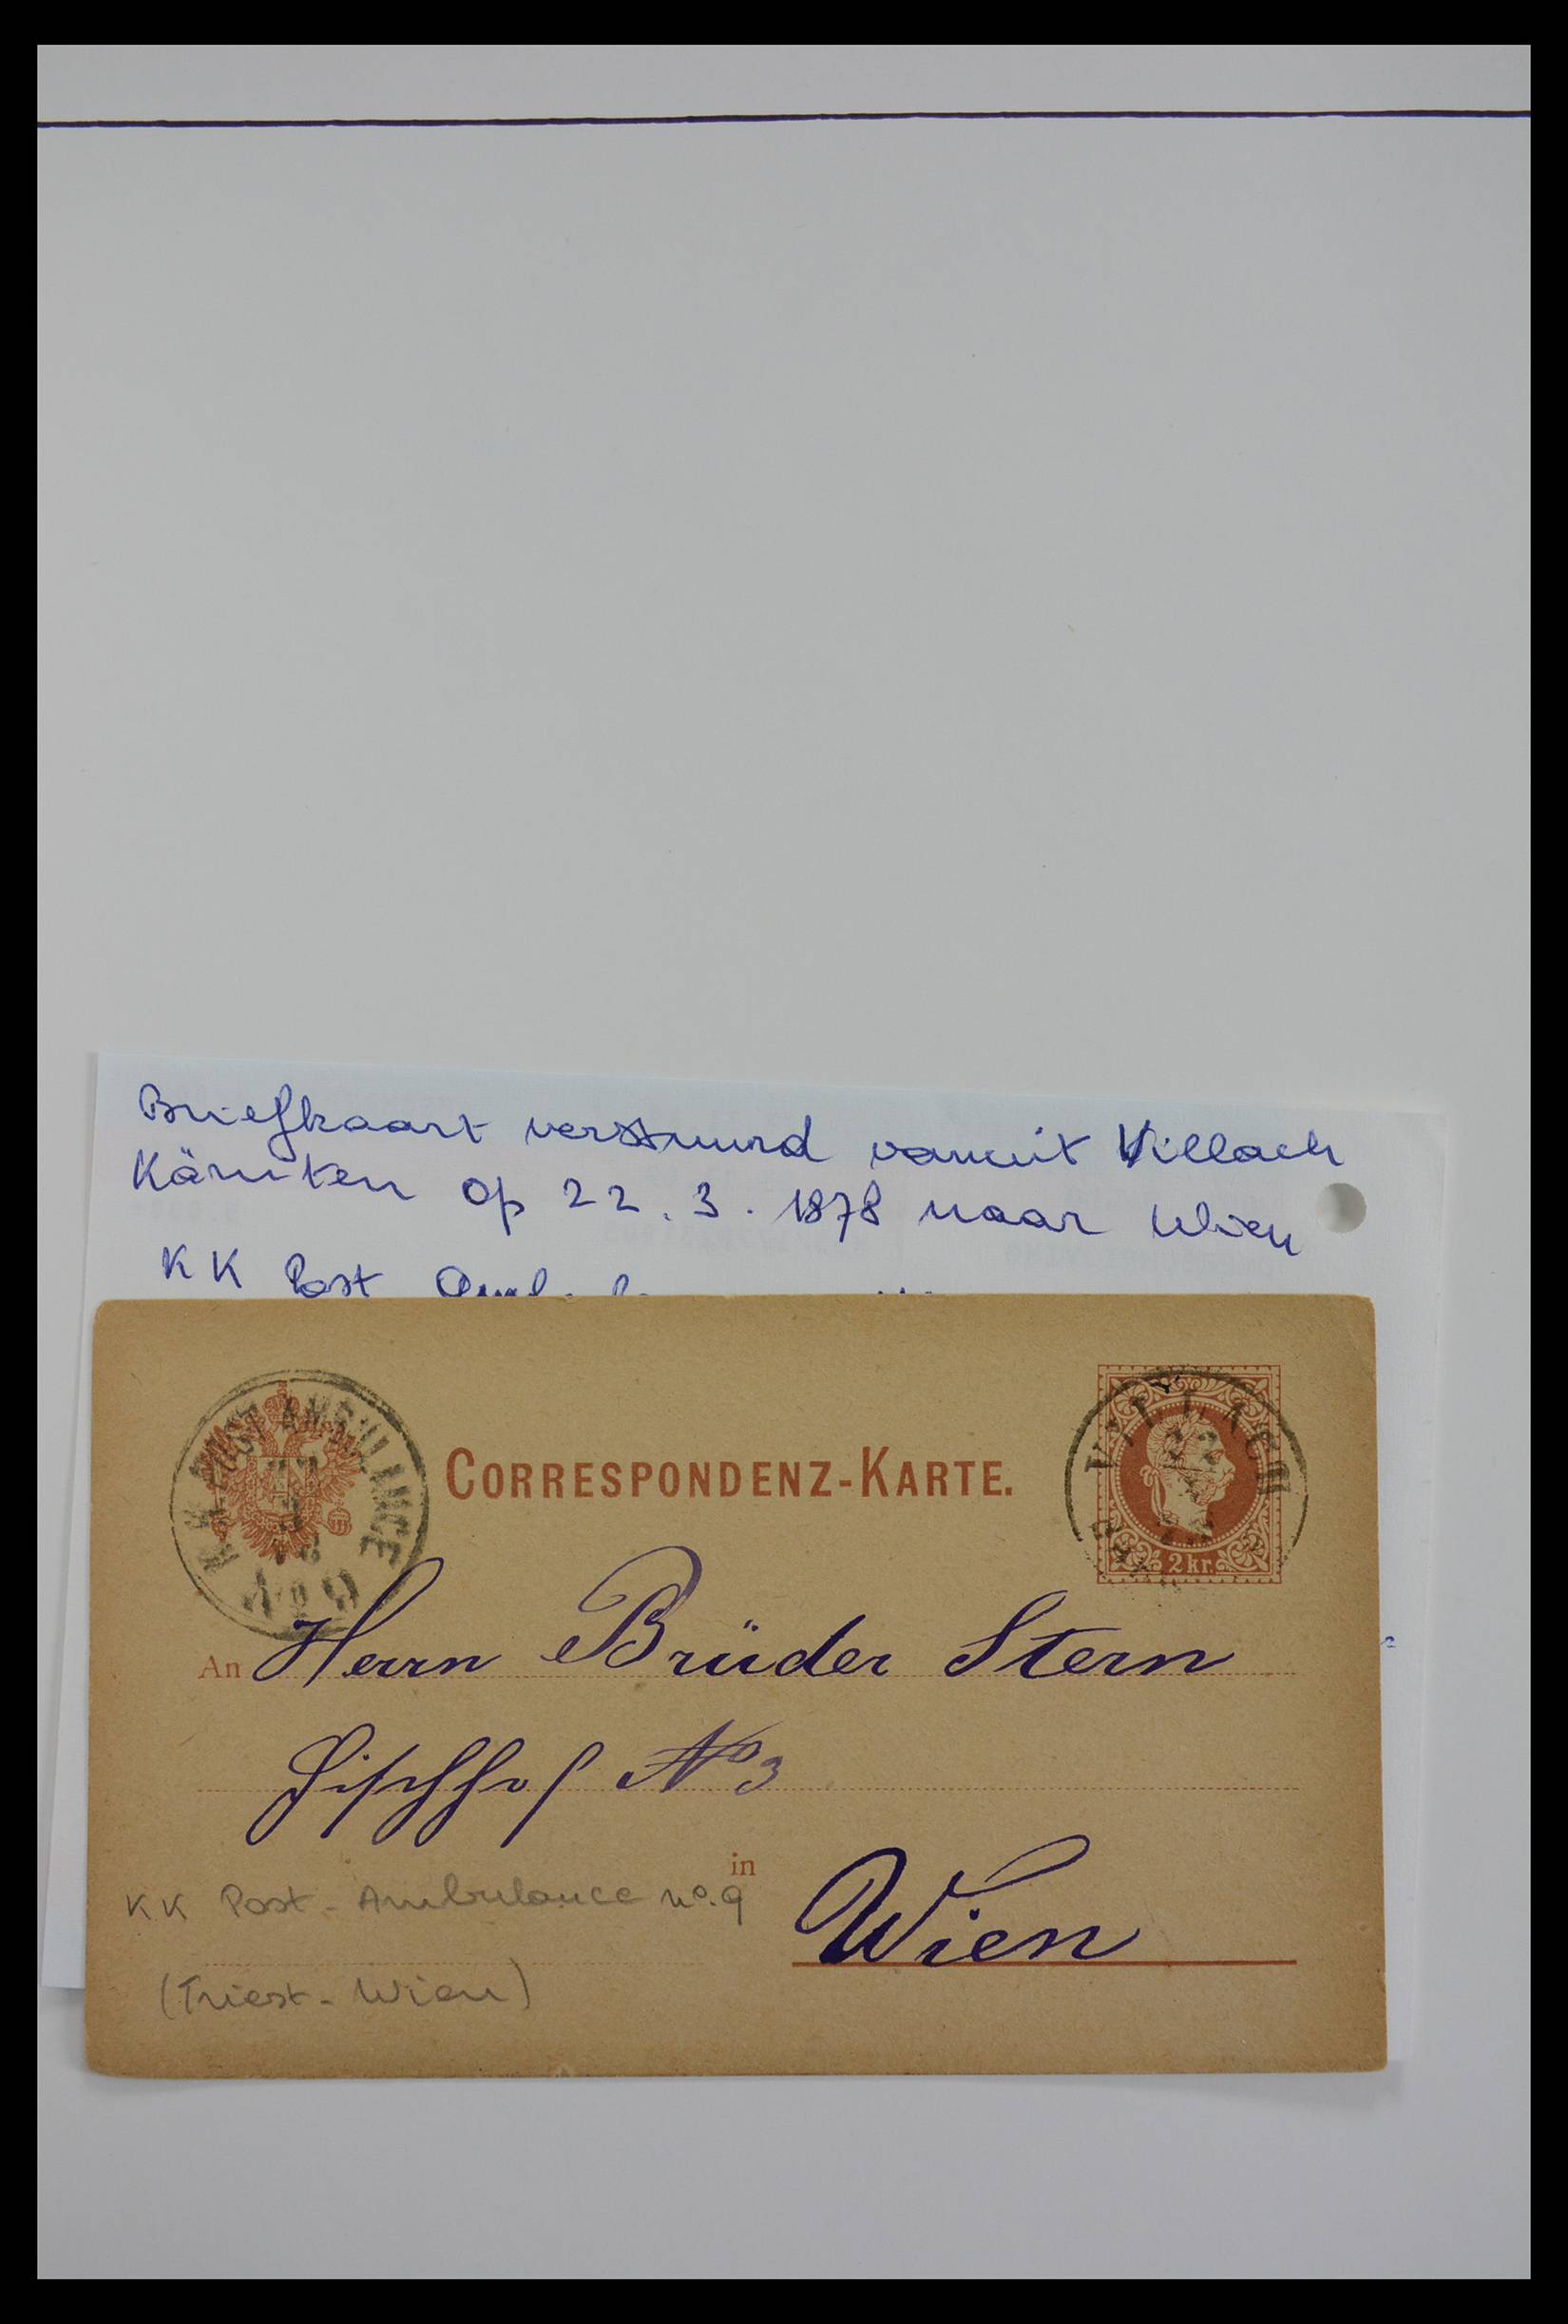 Briefkaart verstuurd vanuit Villach
Kärnten op 22.3.1878 naar Wien
KK Post
K.K. POST AMBULANCE
22
3
78
No 9
CORRESPONDENZ-KARTE.
VILLACH
22
2 kr.
An Herrn Brüder Stern
Fischhof No 3
in Wien
KK Post-Ambulance no. 9
(Triest-Wien)